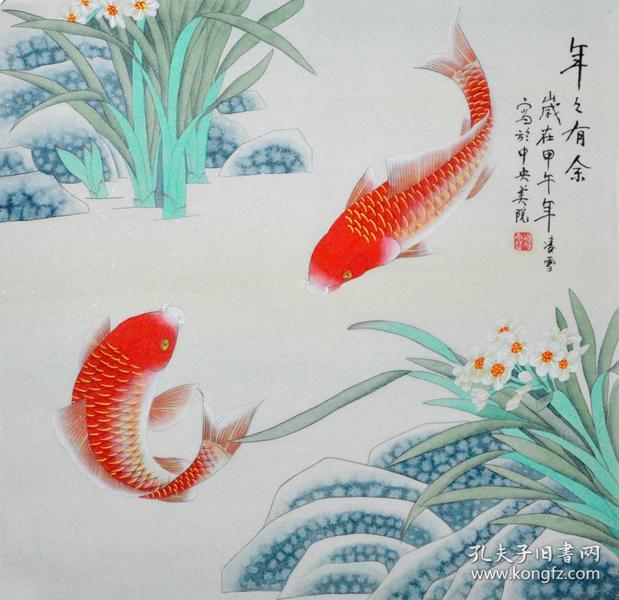 年々有余
歲在甲午年凌雪
寫於中央美院
孔夫子旧書网
www.kongfz.com